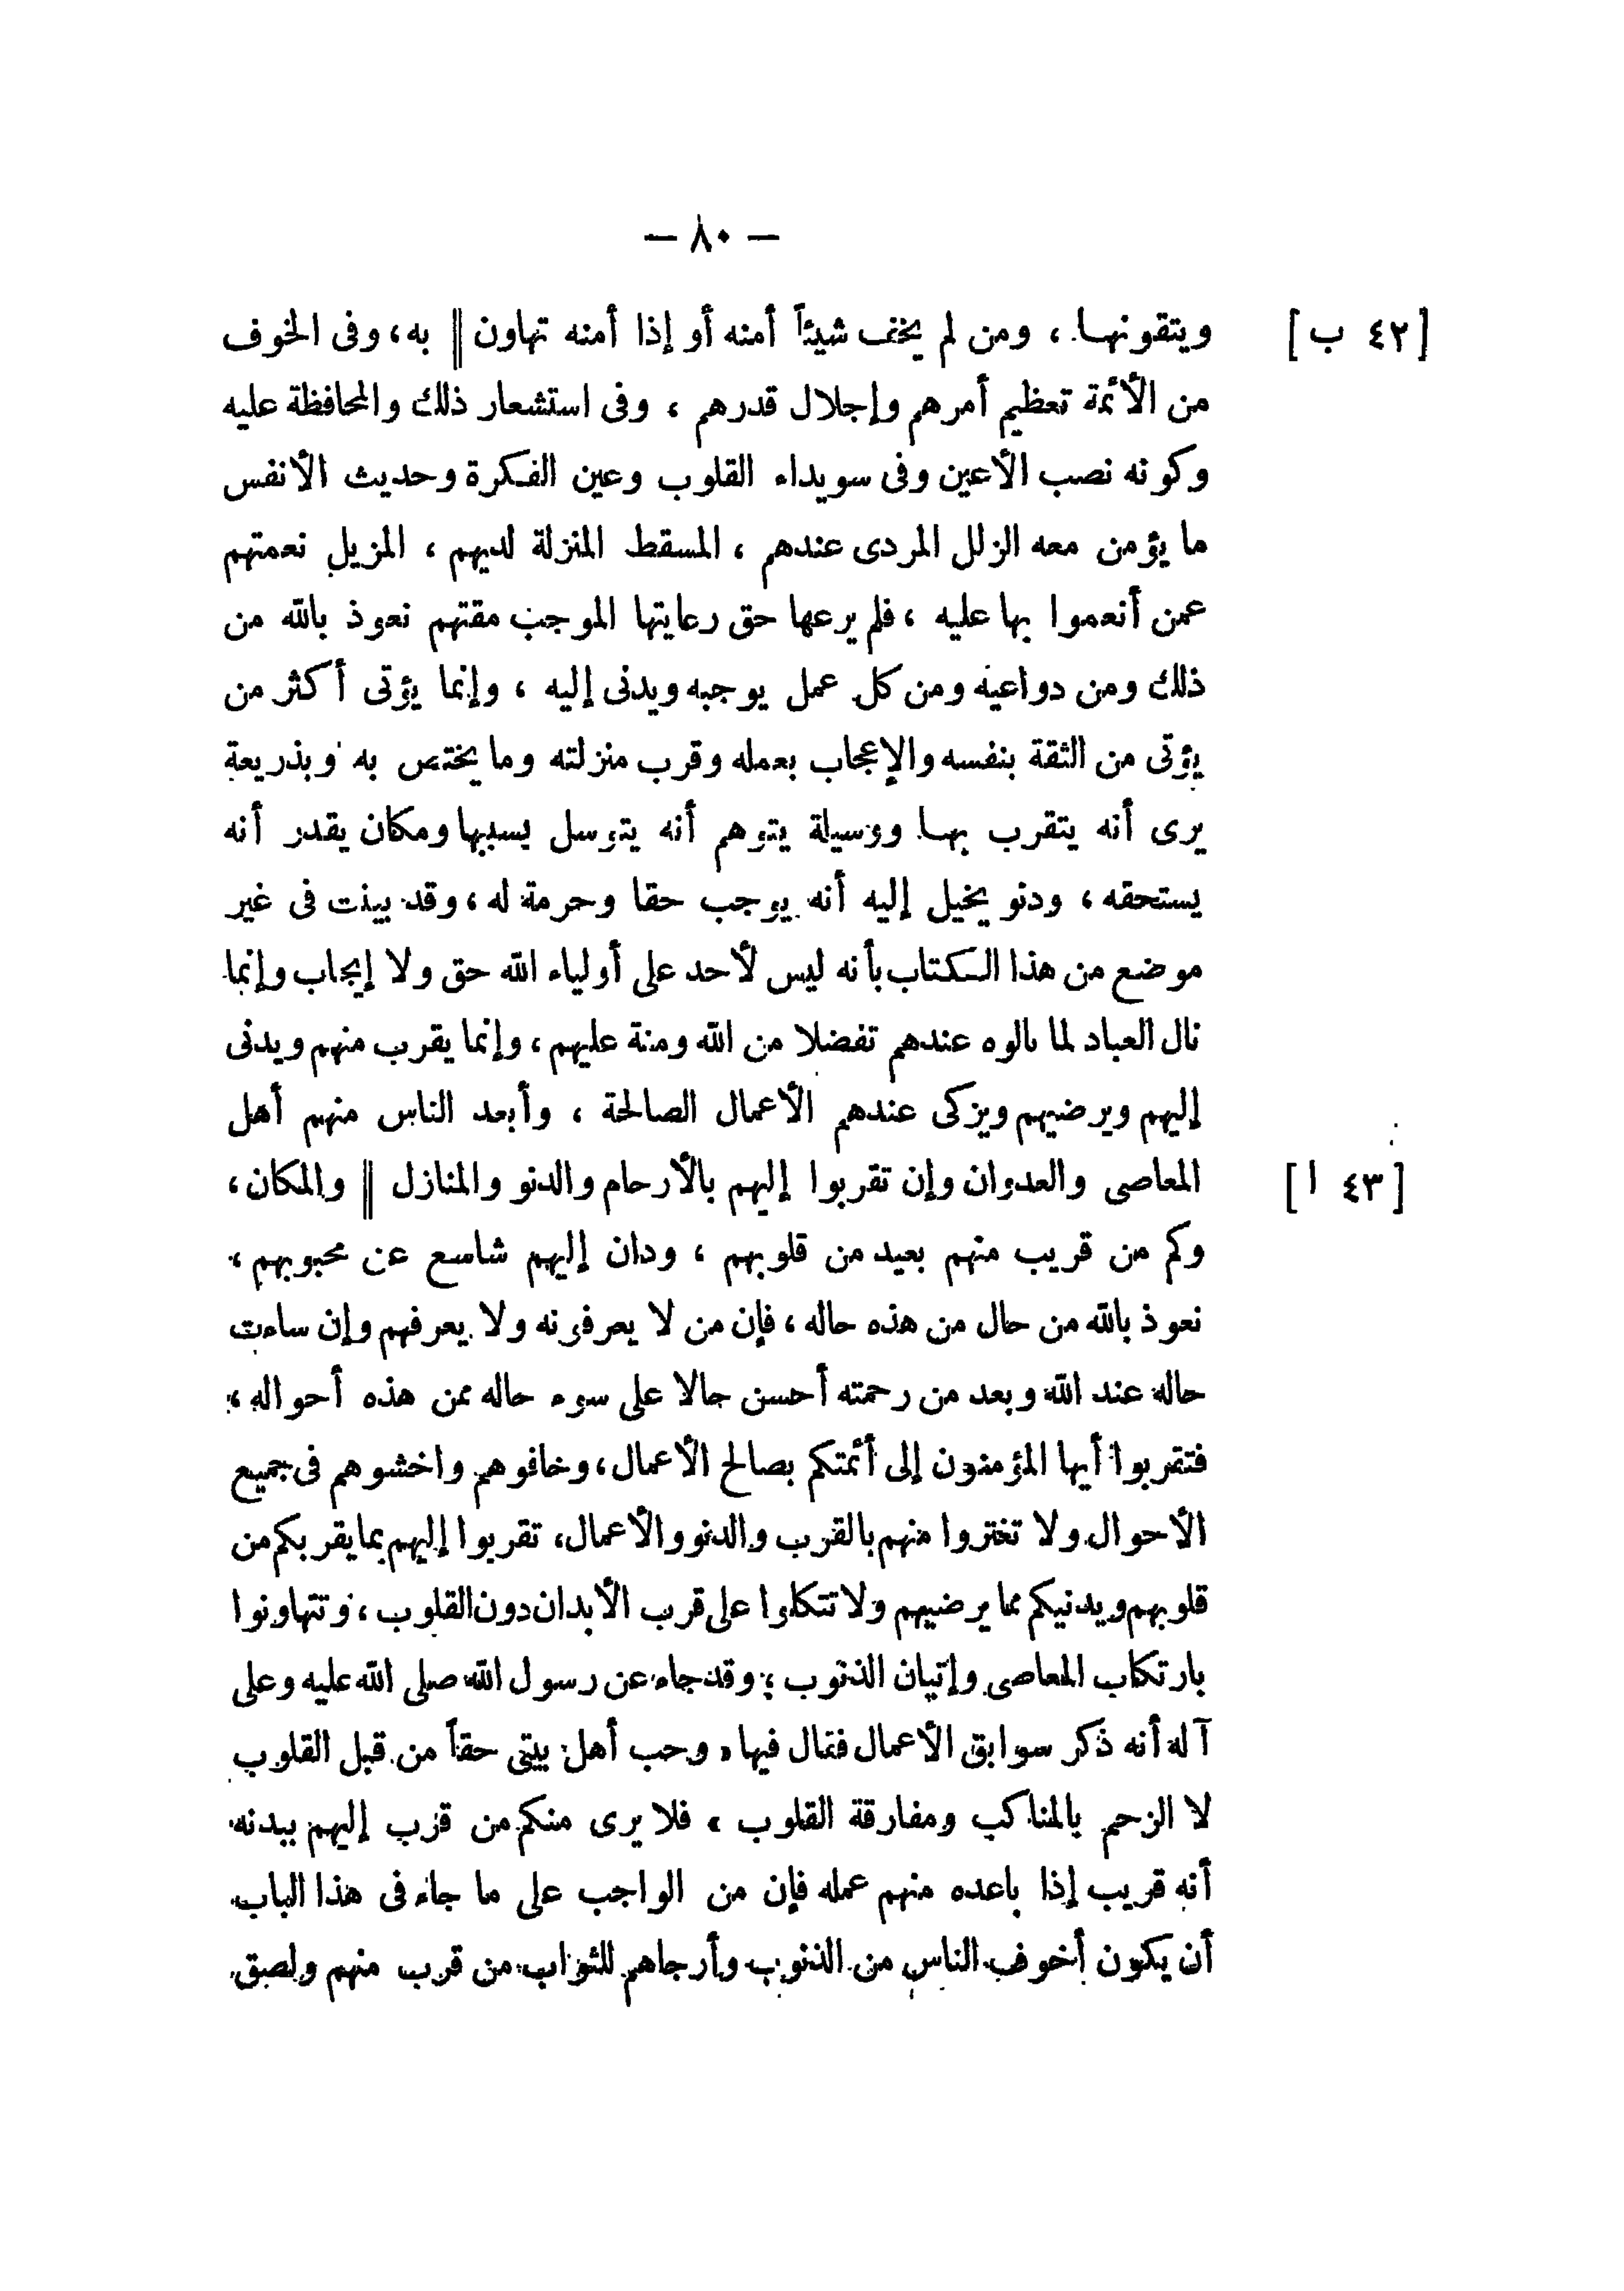 — ٨٠ —
[٤٢ ب] ويتقونها ، ومن لم يخف شيئاً أمنه أو إذا أمنه تهاون || به، وفى الخوف
من الأئمة تعظيم أمرهم وإجلال قدرهم ، وفى استشعار ذلك والمحافظة عليه
وكونه نصب الأعين وفى سويداء القلوب وعين الفكرة وحديث الأنفس
ما يؤمن معه الزلل المردى عندهم ، المسقط المنزلة لديهم ، المزيل نعمتهم
عمن أنعموا بها عليه ، فلم يرعها حق رعايتها الموجب مقتهم نعوذ بالله من
ذلك ومن دواعيه ومن كل عمل يوجبه ويدنى إليه ، وإنما يؤتى أكثر من
يؤتى من الثقة بنفسه والإعجاب بعمله وقرب منزلته وما يختص به وبذريعة
يرى أنه يتقرب بها ووسيلة يتوهم أنه يتوسل بسببها ومكان يقدر أنه
يستحقه ، ودنو يخيل إليه أنه يوجب حقا وحرمة له ، وقد بينت فى غير
موضع من هذا الكتاب بأنه ليس لأحد على أولياء الله حق ولا إيجاب وإنما
نال العباد لما نالوه عندهم تفضلا من الله ومنة عليهم ، وإنما يقرب منهم ويدنى
إليهم ويرضيهم ويزكى عندهم الأعمال الصالحة ، وأبعد الناس منهم أهل
[٤٣ ا] المعاصى والعدوان وإن تقربوا إليهم بالأرحام والدنو والمنازل || والمكان ،
وكم من قريب منهم بعيد من قلوبهم ، ودان إليهم شاسع عن محبوبهم ،
نعوذ بالله من حال من هذه حاله ، فإن من لا يعرفونه ولا يعرفهم وإن ساءت
حاله عند الله وبعد من رحمته أحسن حالا على سوء حاله ممن هذه أحواله ،
فتقربوا أيها المؤمنون إلى أئمتكم بصالح الأعمال ، وخافوهم واخشوهم فى جميع
الأحوال ولا تغتروا منهم بالقرب والدنو والأعمال، تقربوا إليهم بما يقربكم من
قلوبهم ويدنيكم مما يرضيهم ولا تتكلوا على قرب الأبدان دون القلوب ، وتتهاونوا
بارتكاب المعاصى وإتيان الذنوب ؛ وقد جاء عن رسول الله صلى الله عليه وعلى
آله أنه ذكر سوابق الأعمال فقال فيها « وحب أهل بيتى حقاً من قبل القلوب
لا الزحم بالمناكب ومفارقة القلوب » فلا يرى منكم من قرب إليهم ببدنه
أنه قريب إذا باعده منهم عمله فإن من الواجب على ما جاء فى هذا الباب
أن يكون أخوف الناس من الذنوب وأرجاهم للثواب من قرب منهم ولصق